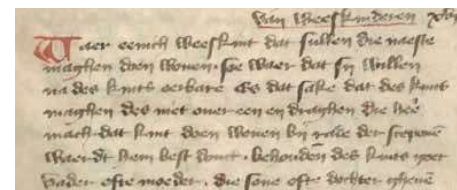 Van Weeskinderen
Waer eenich weeskint dat sullen die naeste
maghen doen wonen soe waer dat sij willen
na des kints oerbare Es dat sake dat des kints
maghen des niet over een en draghen die heer
mach dat kint doen wonen bij rade der scepenen
waer dt hem best dunct behouden des kints goet
vader ofte moeder die sone ofte dochter